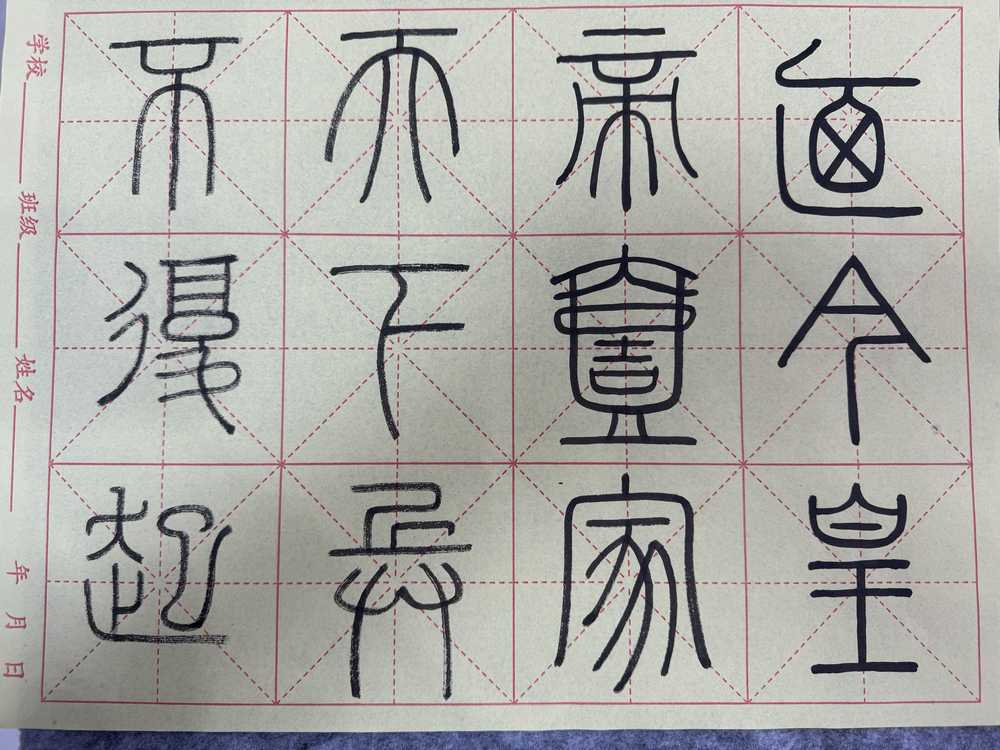 廼今皇
帝壹家
天下兵
不復起
学校 班级 姓名 年 月 日